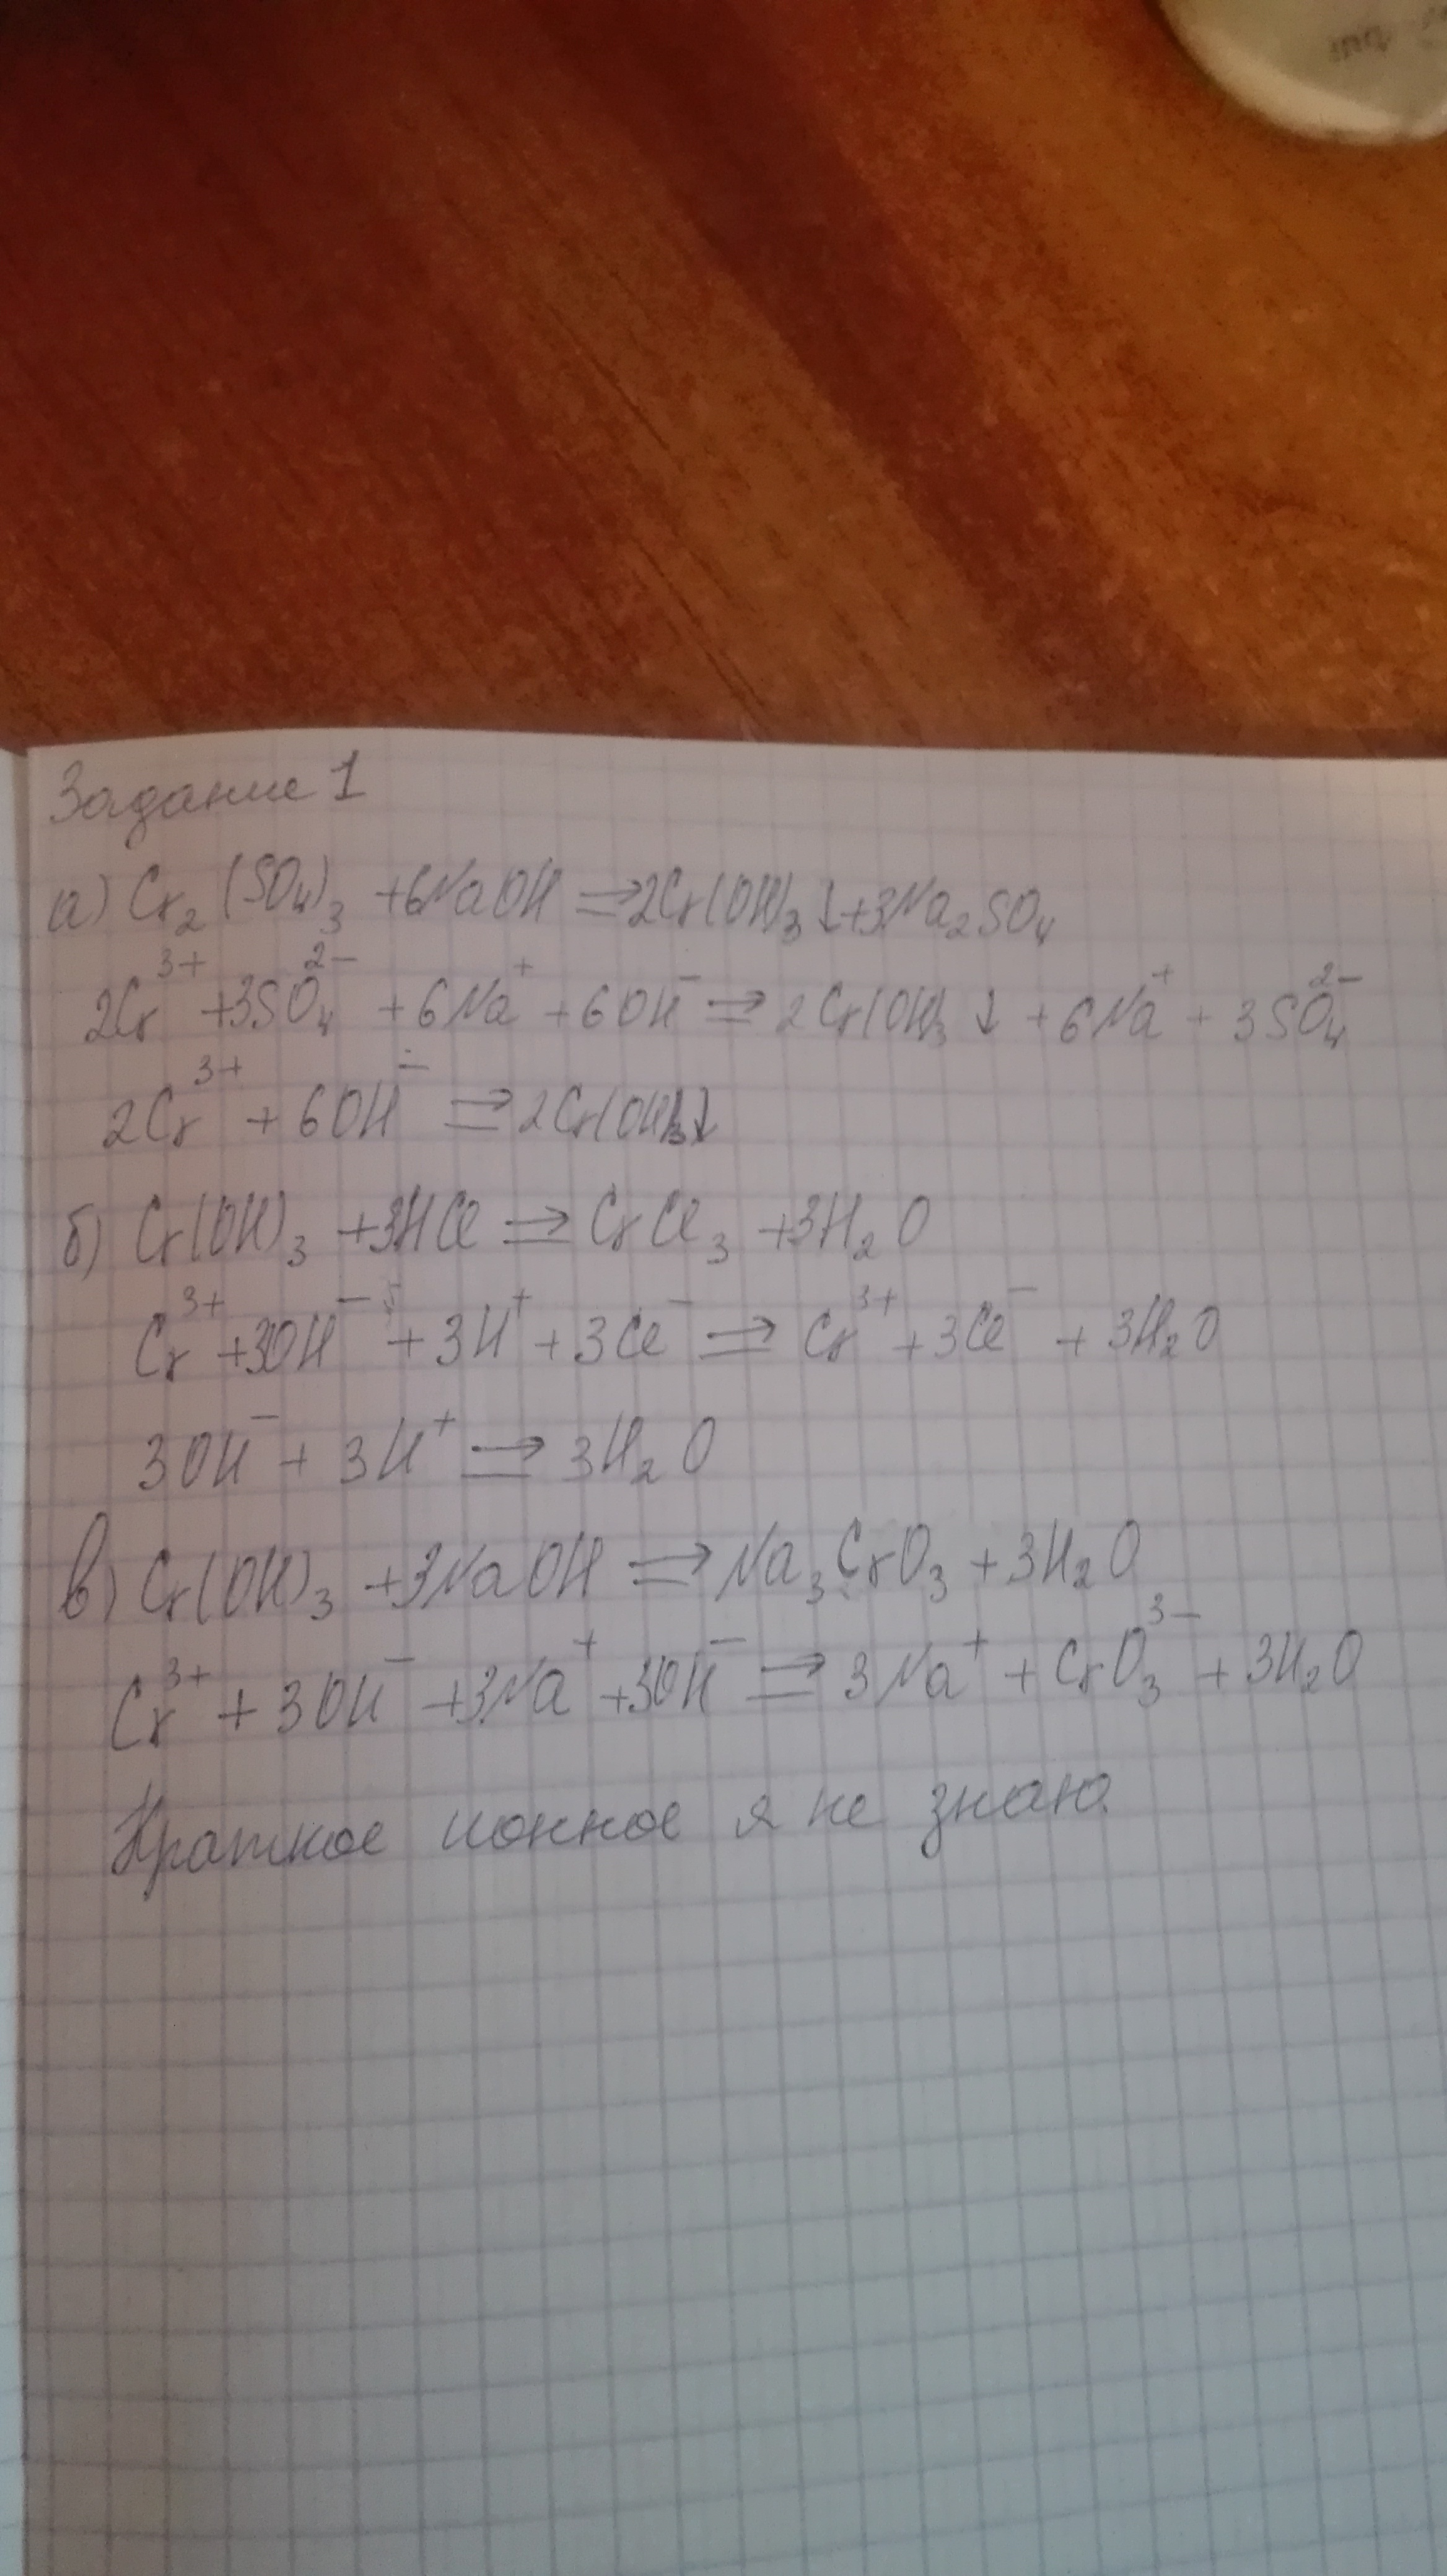 Задание 1
а) Cr₂(SO₄)₃ + 6NaOH ⇒ 2Cr(OH)₃↓ + 3Na₂SO₄
2Cr³⁺ + 3SO₄²⁻ + 6Na⁺ + 6OH⁻ ⇒ 2Cr(OH)₃↓ + 6Na⁺ + 3SO₄²⁻
2Cr³⁺ + 6OH⁻ ⇒ 2Cr(OH)₃↓
б) Cr(OH)₃ + 3HCl ⇒ CrCl₃ + 3H₂O
Cr³⁺ + 3OH⁻ + 3H⁺ + 3Cl⁻ ⇒ Cr³⁺ + 3Cl⁻ + 3H₂O
3OH⁻ + 3H⁺ ⇒ 3H₂O
в) Cr(OH)₃ + 3NaOH ⇒ Na₃CrO₃ + 3H₂O
Cr³⁺ + 3OH⁻ + 3Na⁺ + 3OH⁻ ⇒ 3Na⁺ + CrO₃³⁻ + 3H₂O
Краткое ионное я не знаю.